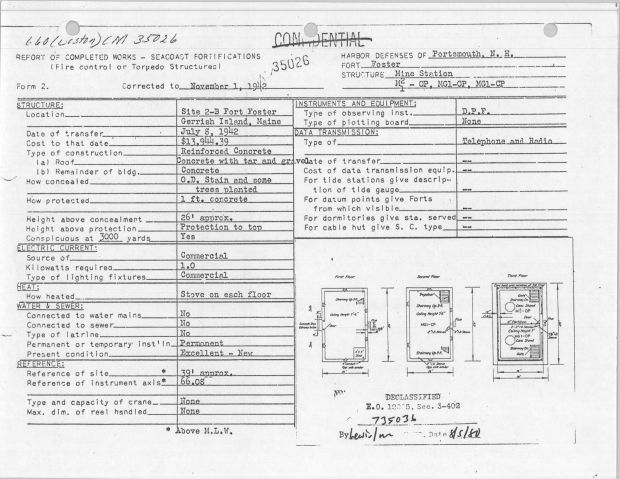 CONFIDENTIAL
35026
REPORT OF COMPLETED WORKS - SEACOAST FORTIFICATIONS
(Fire control or Torpedo Structures)
Form 2. Corrected to November 1, 1942
HARBOR DEFENSES OF Portsmouth, N. H.
FORT Foster
STRUCTURE Mine Station
- OP, MG1-CP, MG1-CP
STRUCTURE:
Location Site 2-B Fort Foster
Gerrish Island, Maine
Date of transfer July 8, 1942
Cost to that date $13,944.39
Type of construction Reinforced Concrete
(a) Roof Concrete with tar and gravel
(b) Remainder of bldg. Concrete
How concealed O.D. Stain and some
trees planted
How protected 1 ft. concrete
Height above concealment 26' approx.
Height above protection Protection to top
Conspicuous at 3000 yards Yes
ELECTRIC CURRENT:
Source of Commercial
Kilowatts required 1.0
Type of lighting fixtures Commercial
HEAT:
How heated Stove on each floor
WATER & SEWER:
Connected to water mains No
Connected to sewer No
Type of latrine No
Permanent or temporary inst'ln Permanent
Present condition Excellent - New
REFERENCE:
Reference of site* 39' approx.
Reference of instrument axis* 66.08
Type and capacity of crane None
Max. dim. of reel handled None
* Above M.L.W.
INSTRUMENTS AND EQUIPMENT:
Type of observing inst. D.P.F.
Type of plotting board None
DATA TRANSMISSION:
Type of Telephone and Radio
Date of transfer --
Cost of data transmission equip. --
For tide stations give descrip-
tion of tide gauge --
For datum points give Forts
from which visible --
For dormitories give sta. served --
For cable hut give S. C. type --
First Floor
Second Floor
Third Floor
DECLASSIFIED
E.O. Sec. 3-402
735036
By Date